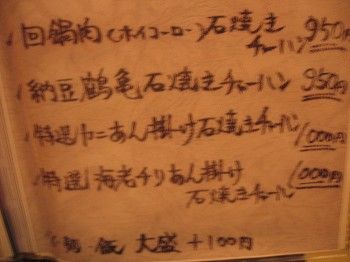 回鍋肉(ホイコーロー)石焼き
チャーハン 950円
納豆鶴亀石焼きチャーハン 950円
特選カニあん掛け石焼きチャーハン 1000円
特選海老チリあん掛け 1000円
石焼きチャーハン
麺・飯 大盛 +100円